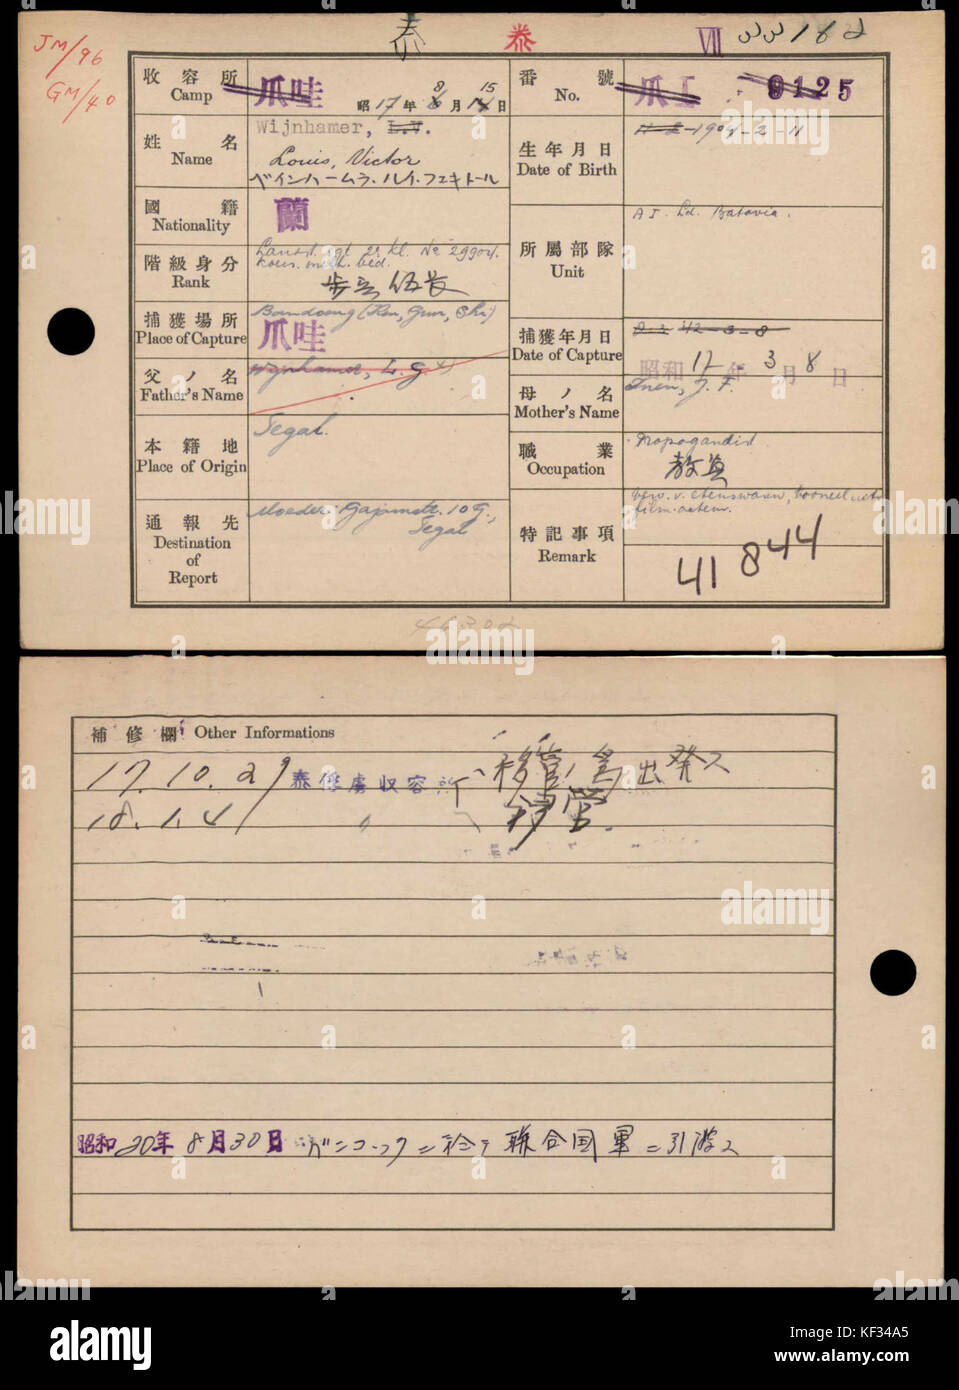 泰 泰 VII 33182
JM/96
GM/40
收容所 Camp 爪哇 昭17年8月15日
番號 No. 爪I 9125
姓名 Name Wijnhamer, L.V.
Louis, Victor
ベインハームラ・ルイ・フェキトール
生年月日 Date of Birth 1904-2-11
國籍 Nationality 蘭
所屬部隊 Unit AI. Ld. Batavia.
階級身分 Rank Lanst. sgt 2e kl. No 29904.
歩兵伍長
捕獲場所 Place of Capture Bandoeng
爪哇
捕獲年月日 Date of Capture 42-3-8
昭和17年3月8日
父ノ名 Father's Name Wijnhamer, L. G.
母ノ名 Mother's Name J. F.
本籍地 Place of Origin Tegal.
職業 Occupation Propagandist.
教員
通報先 Destination of Report Moeder: Gajamstr. 10 G.,
Tegal
特記事項 Remark
41844
46302
補修欄 Other Informations
17.10.29 泰俘虜収容所へ移管ノ為出発ス
18.1.4 〃 移管.
昭和20年8月30日 バンコックニ於テ聯合国軍ニ引渡ス
alamy
Image ID: KF34A5
www.alamy.com